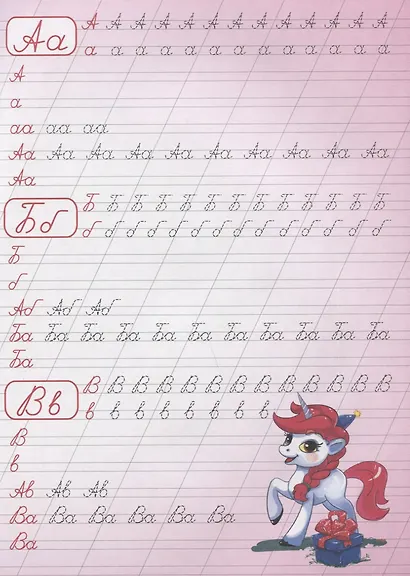 Аа
А А А А А А А А А А А А А
а а а а а а а а а а а а а
А
а
аа аа аа
Аа Аа Аа Аа Аа Аа Аа Аа Аа Аа
Аа
Бб
Б Б Б Б Б Б Б Б Б Б Б Б Б
б б б б б б б б б б б б б
Б
б
Аб Аб Аб
Ба Ба Ба Ба Ба Ба Ба Ба Ба Ба
Ба
Вв
В В В В В В В В В В В В В
в в в в в в в в
В
в
Ав Ав Ав
Ва Ва Ва Ва Ва Ва
Ва